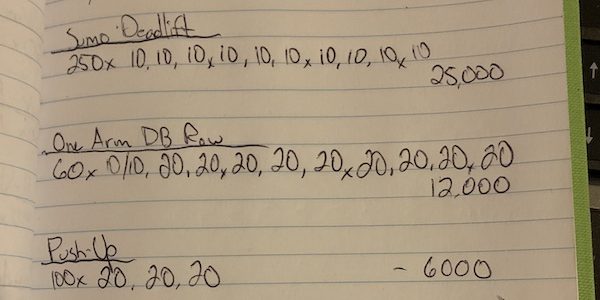 Sumo Deadlift
250x 10, 10, 10x 10, 10, 10x 10, 10, 10x 10
25,000
One Arm DB Row
60x 10/10, 20, 20x 20, 20, 20x 20, 20, 20x 20
12,000
Push-Up
100x 20, 20, 20 - 6000